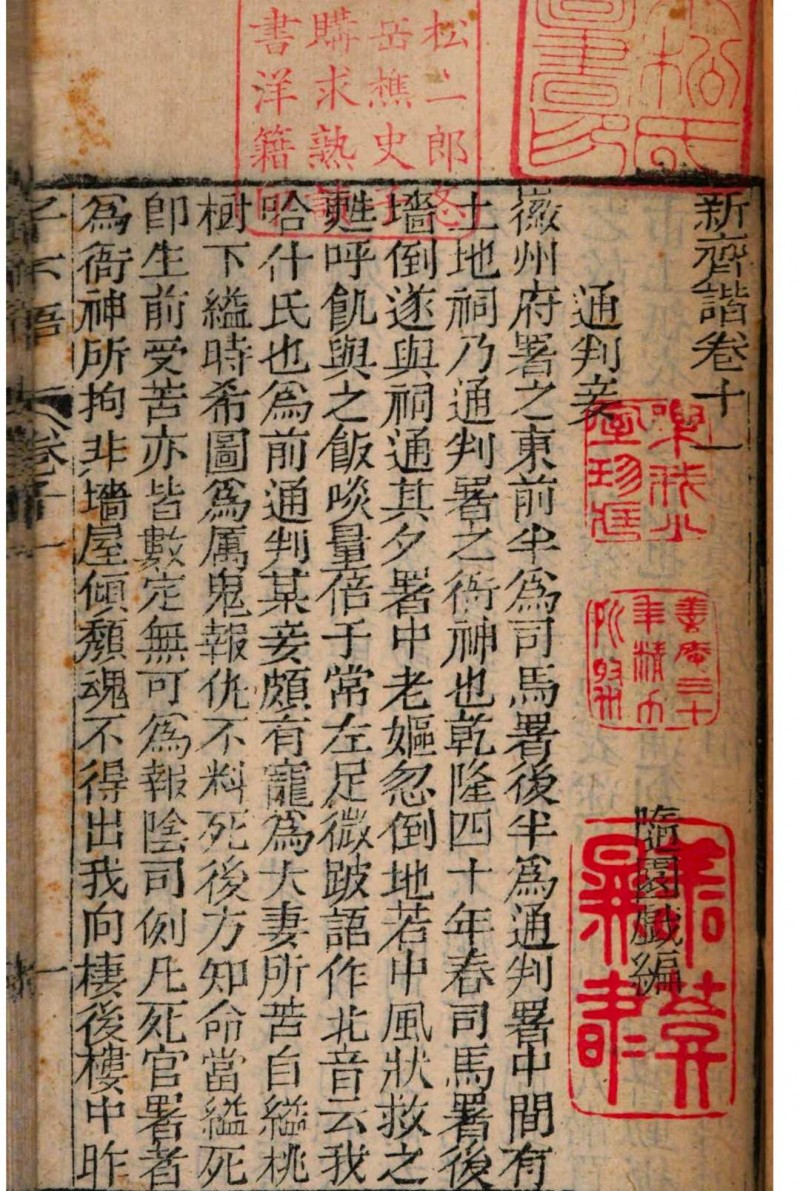 新齊諧卷十一
隨園戲編
通判妾
徽州府署之東前半爲司馬署後半爲通判署中間有
土地祠乃通判署之衙神也乾隆四十年春司馬署後
墻倒遂與祠通其夕署中老嫗忽倒地若中風狀救之
甦呼飢與之飯啖量倍于常左足微跛語作北音云我
哈什氏也爲前通判某妾頗有寵爲大妻所苦自縊桃
樹下縊時希圖爲厲鬼報仇不料死後方知命當縊死
卽生前受苦亦皆數定無可爲報陰司例凡死官署者
爲衙神所拘非墻屋傾頹魂不得出我向棲後樓中昨
子不語
卷十一
一
松二郎
岳樵史
購求熟讀
書洋籍